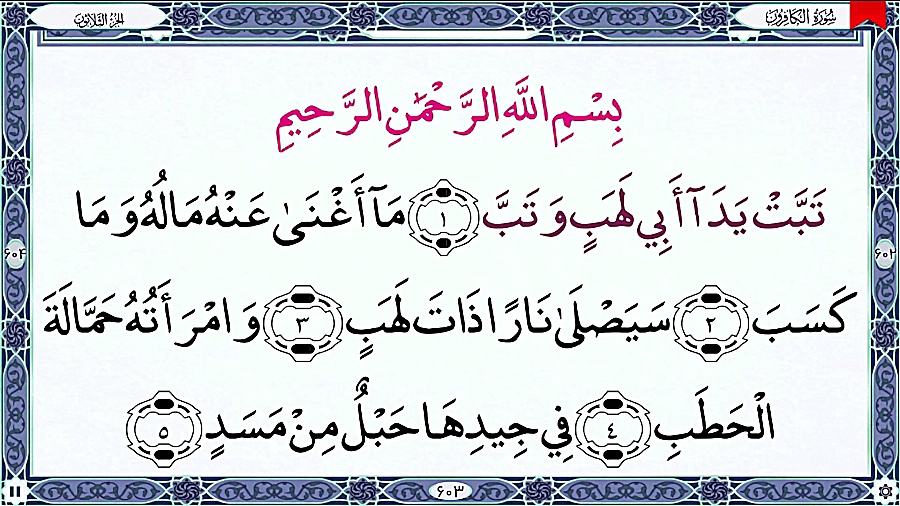 سُورَةُ الكَافِرُونَ
الجزء الثلاثون
بِسْمِ اللَّهِ الرَّحْمَٰنِ الرَّحِيمِ
تَبَّتْ يَدَآ أَبِي لَهَبٍ وَتَبَّ ١ مَآ أَغْنَىٰ عَنْهُ مَالُهُ وَمَا
كَسَبَ ٢ سَيَصْلَىٰ نَارًا ذَاتَ لَهَبٍ ٣ وَامْرَأَتُهُ حَمَّالَةَ
الْحَطَبِ ٤ فِي جِيدِهَا حَبْلٌ مِنْ مَسَدٍ ٥
٦٠٢
٦٠٤
٦٠٣